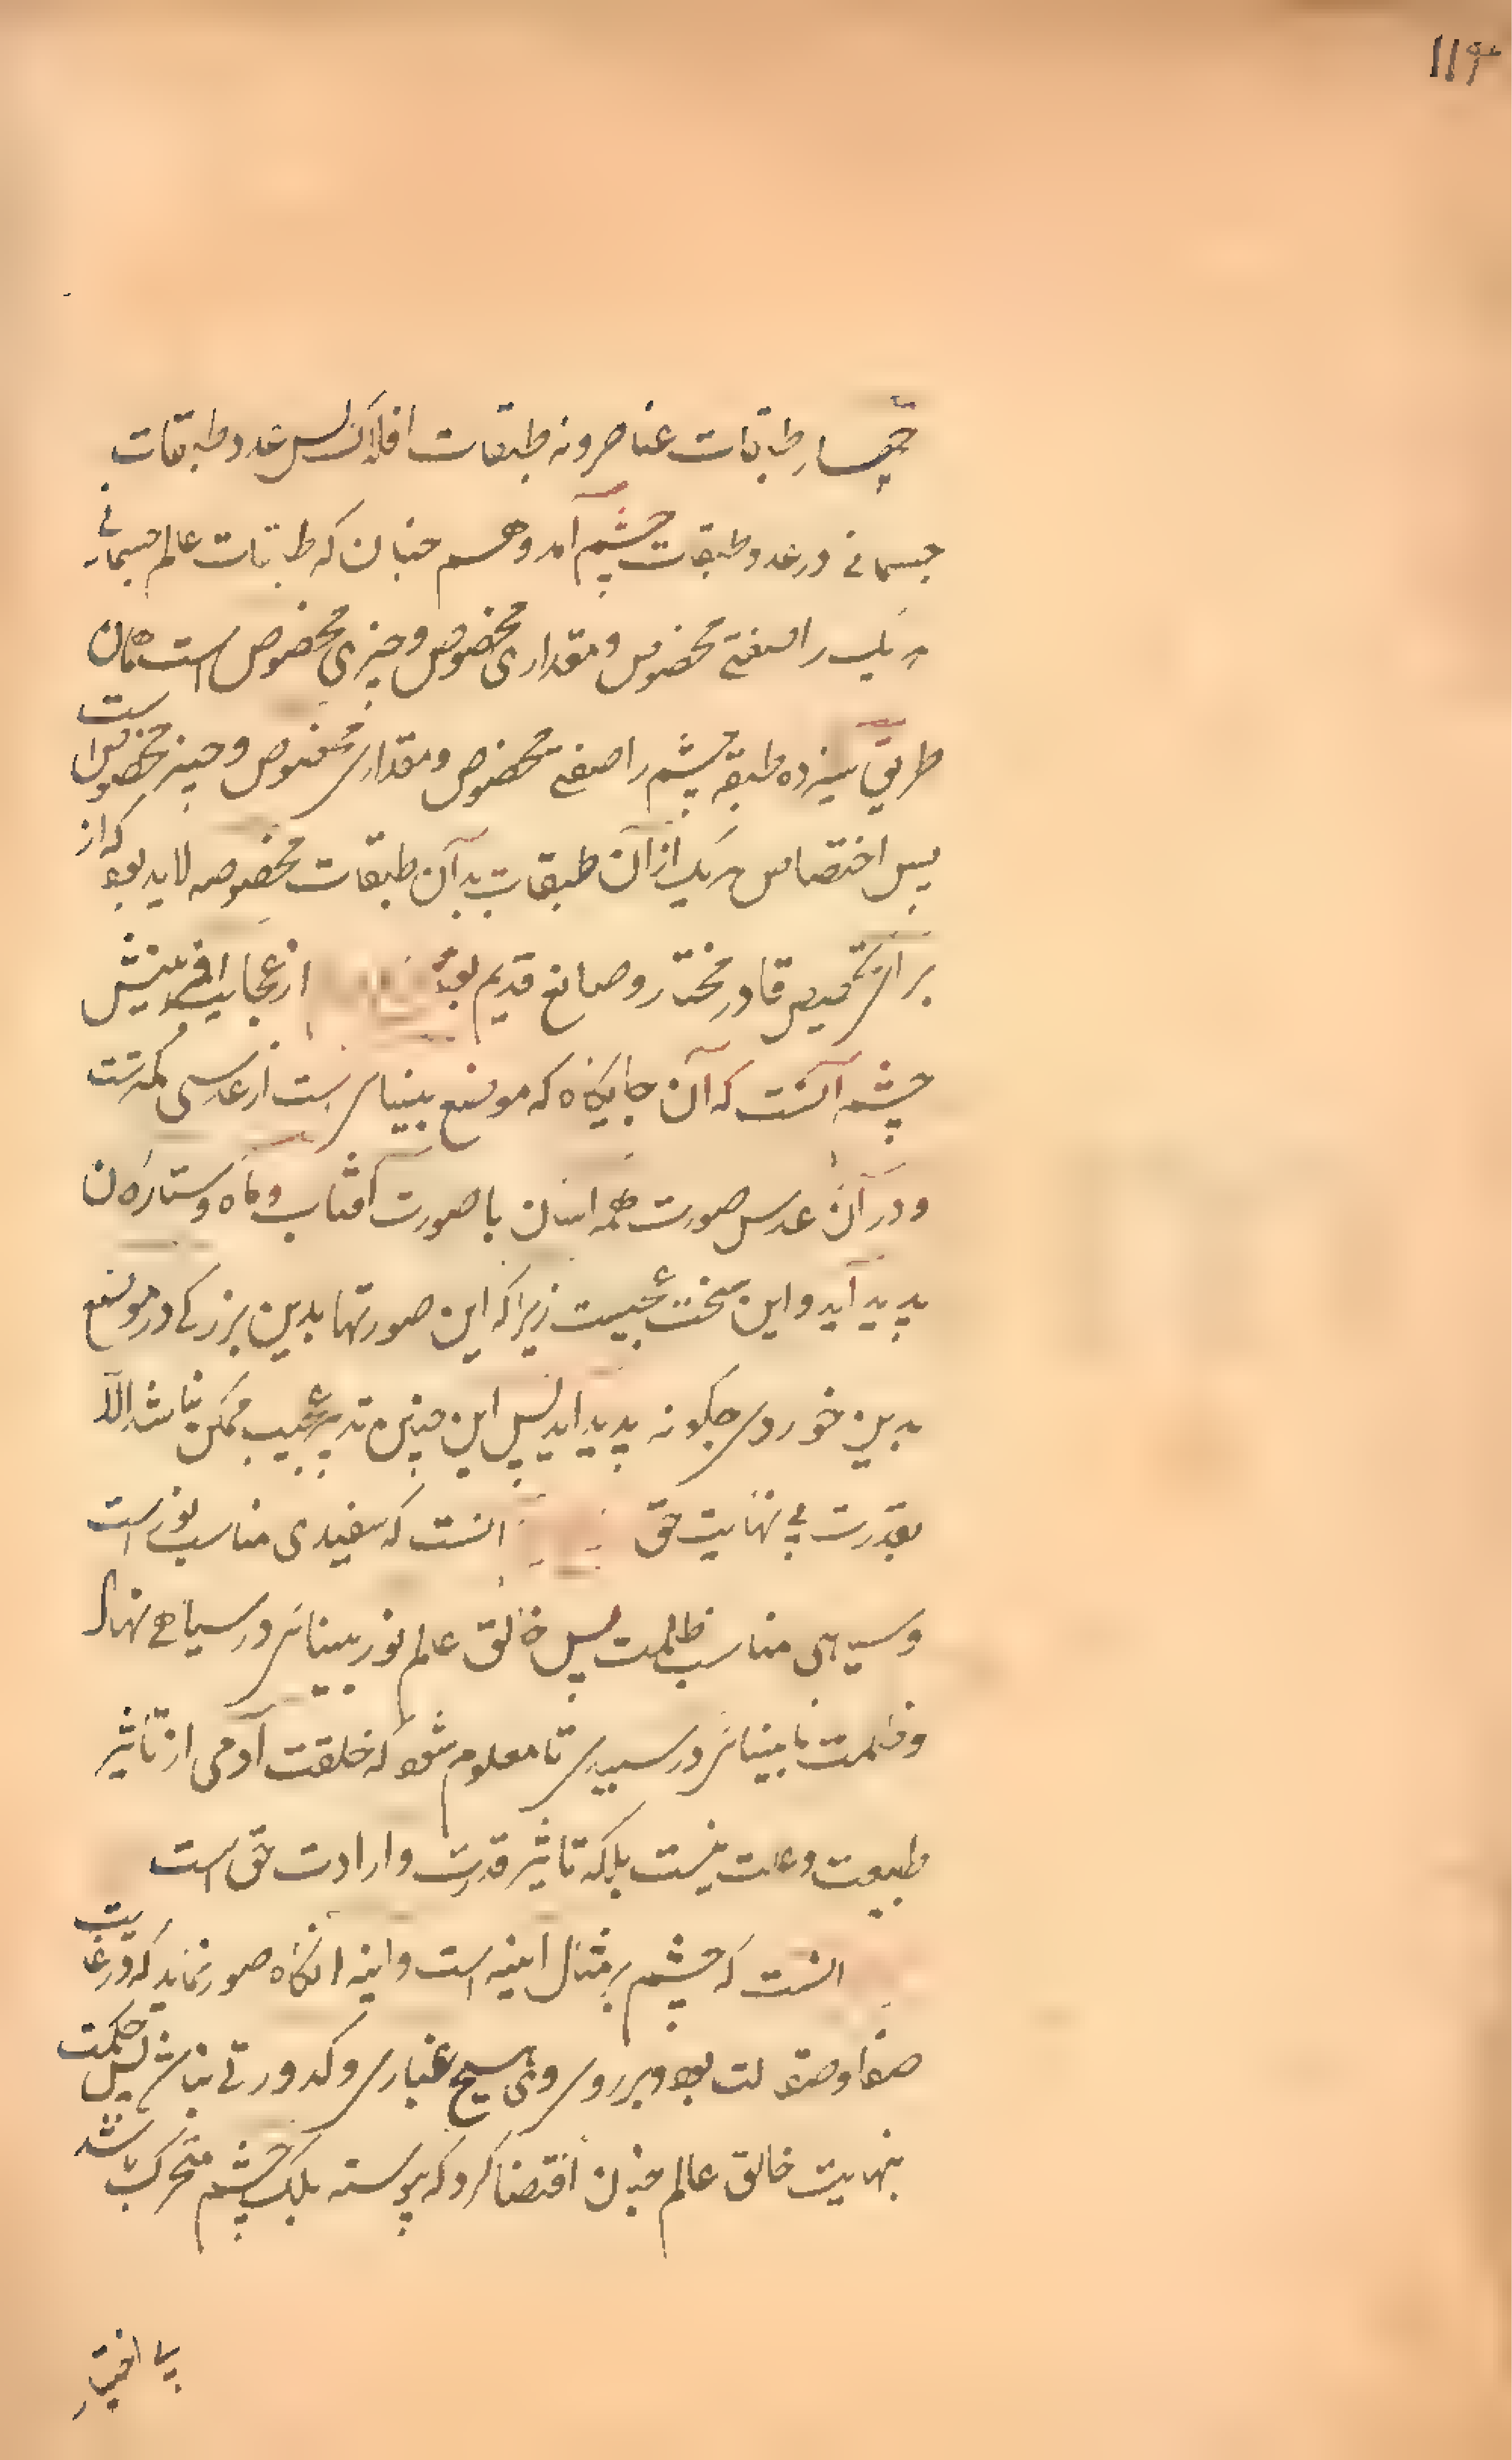 ۱۱۴
چهار طبقات عناصر و نه طبقات افلاک پس عدد طبقات
جسمانی در عدد طبقات چشم آمد و هم چنان که طبقات عالم جسمانی
هر یک را صفتی مخصوص و مقداری مخصوص و حیزی مخصوص است همان
طریق سیزده طبقه چشم را صفتی مخصوص و مقداری مخصوص و حیز مخصوص است
پس اختصاص هر یک از آن طبقات بدآن طبقات مخصوصه لابد بود که از
برای تخصیص قادر مختار و صانع قدیم بود از عجایب افرینش
چشم آنست که آن جایکاه که موضع بینایی است از عدسی کمترست
و در آن عدس صورت همه اسمان با صورت آفتاب و ماه و ستارکان
پدید آید و این سخت عجیبست زیرا که این صورتها بدین بزرکی در موضع
بدین خوردی چکونه پدید اید پس این چنین تدبیر عجیب ممکن نباشد الا
بقدرت بی نهایت حق انست که سفیدی مناسب نورست
و سیاهی مناسب ظلمت پس خالق عالم نور بینایی در سیاهی نهاد
و ظلمت نابینایی در سپیدی تا معلوم شود که خلقت آدمی از تاثیر
طبیعت و علت نیست بلکه تاثیر قدرت و ارادت حق است
انست که چشم بر مثال آیینه است و اینه انکاه صور نماید که در غایت
صفا و صقالت بود و بر روی وی هیچ غباری و کدورتی نباشد پس حکمت
بنهایت خالق عالم چنان اقتضا کرد که پیوسته پلک چشم متحرک باشد